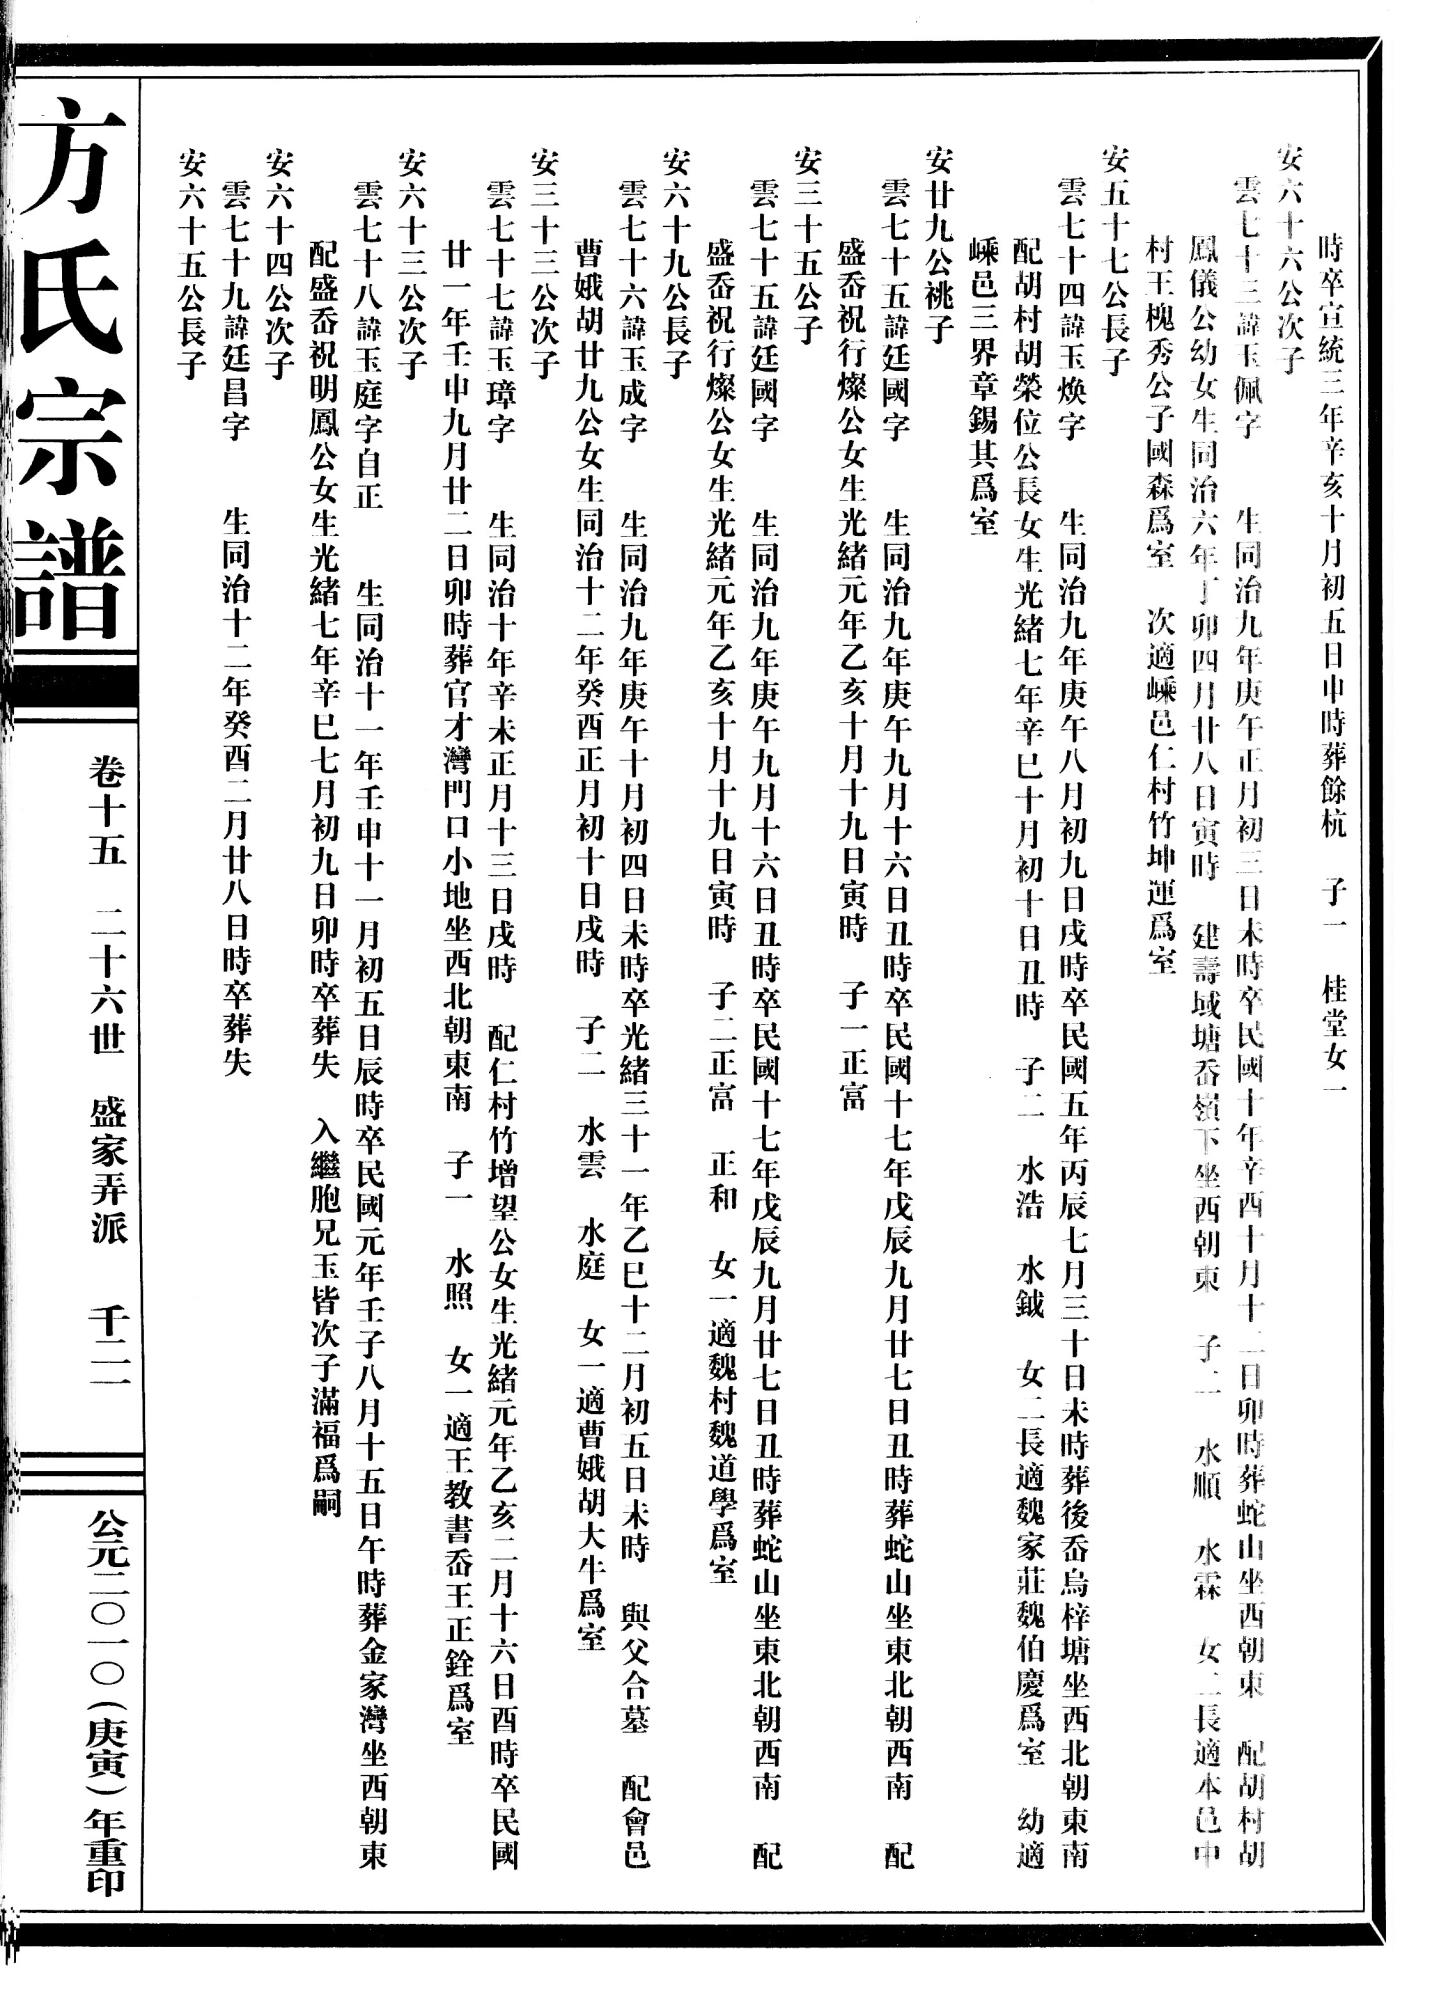 時卒宣統三年辛亥十月初五日申時葬餘杭　子一　桂堂女一
安六十六公次子
雲七十三諱玉佩字　生同治九年庚午正月初三日未時卒民國十年辛酉十月十二日卯時葬蛇山坐西朝東　配胡村胡
鳳儀公幼女生同治六年丁卯四月廿八日寅時　建壽域塘岙嶺下坐西朝東　子二　水順　水霖　女二長適本邑中
村王槐秀公子國森爲室　次適嵊邑仁村竹坤運爲室
安五十七公長子
雲七十四諱玉煥字　生同治九年庚午八月初九日戌時卒民國五年丙辰七月三十日未時葬後岙烏梓塘坐西北朝東南
配胡村胡榮位公長女生光緒七年辛巳十月初十日丑時　子二　水浩　水鉞　女二長適魏家莊魏伯慶爲室　幼適
嵊邑三界章錫其爲室
安廿九公祧子
雲七十五諱廷國字　生同治九年庚午九月十六日丑時卒民國十七年戊辰九月廿七日丑時葬蛇山坐東北朝西南　配
盛岙祝行燦公女生光緒元年乙亥十月十九日寅時　子一正富
安三十五公子
雲七十五諱廷國字　生同治九年庚午九月十六日丑時卒民國十七年戊辰九月廿七日丑時葬蛇山坐東北朝西南　配
盛岙祝行燦公女生光緒元年乙亥十月十九日寅時　子二正富　正和　女一適魏村魏道學爲室
安六十九公長子
雲七十六諱玉成字　生同治九年庚午十月初四日未時卒光緒三十一年乙巳十二月初五日未時　與父合墓　配會邑
曹娥胡廿九公女生同治十二年癸酉正月初十日戌時　子二　水雲　水庭　女一適曹娥胡大牛爲室
安三十三公次子
雲七十七諱玉璋字　生同治十年辛未正月十三日戌時　配仁村竹增望公女生光緒元年乙亥二月十六日酉時卒民國
廿一年壬申九月廿二日卯時葬官才灣門口小地坐西北朝東南　子一　水照　女一適王教書岙王正銓爲室
安六十三公次子
雲七十八諱玉庭字自正　生同治十一年壬申十一月初五日辰時卒民國元年壬子八月十五日午時葬金家灣坐西朝東
配盛岙祝明鳳公女生光緒七年辛巳七月初九日卯時卒葬失　入繼胞兄玉皆次子滿福爲嗣
安六十四公次子
雲七十九諱廷昌字　生同治十二年癸酉二月廿八日時卒葬失
安六十五公長子
方氏宗譜
卷十五　二十六世　盛家弄派　千二一
公元二〇一〇(庚寅)年重印